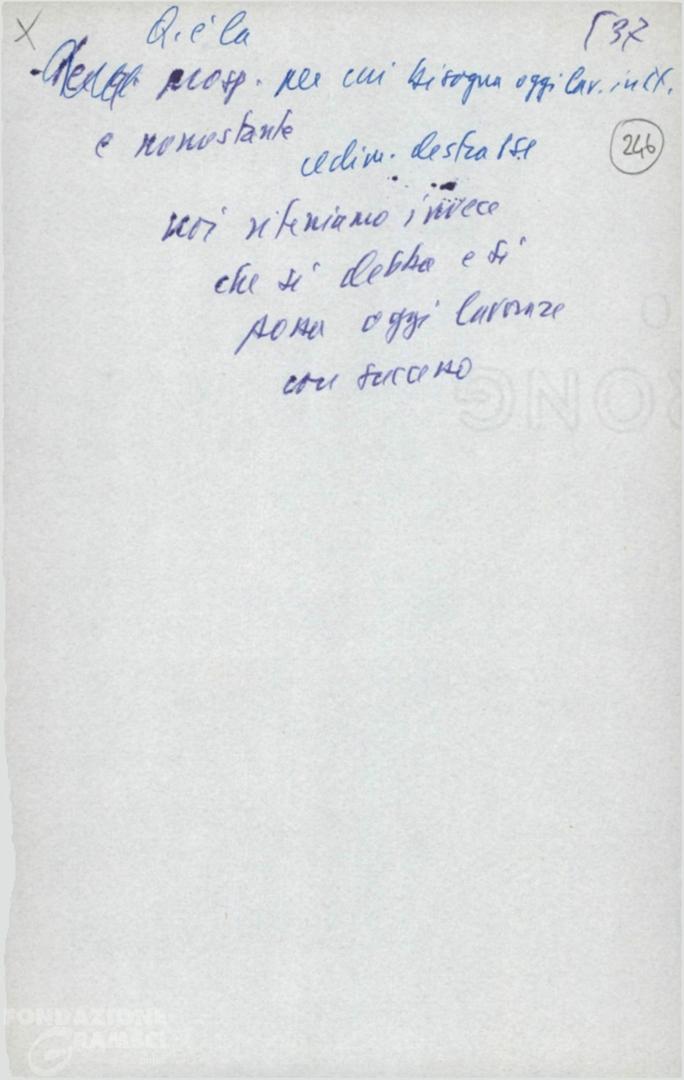 X
Q. è la
[37
prosp. per cui bisogna oggi lav. in It.
246
e nonostante
cedim. destra
noi riteniamo invece
che si debba e si
possa oggi lavorare
con successo
ONG
FONDAZIONE
GRAMSCI